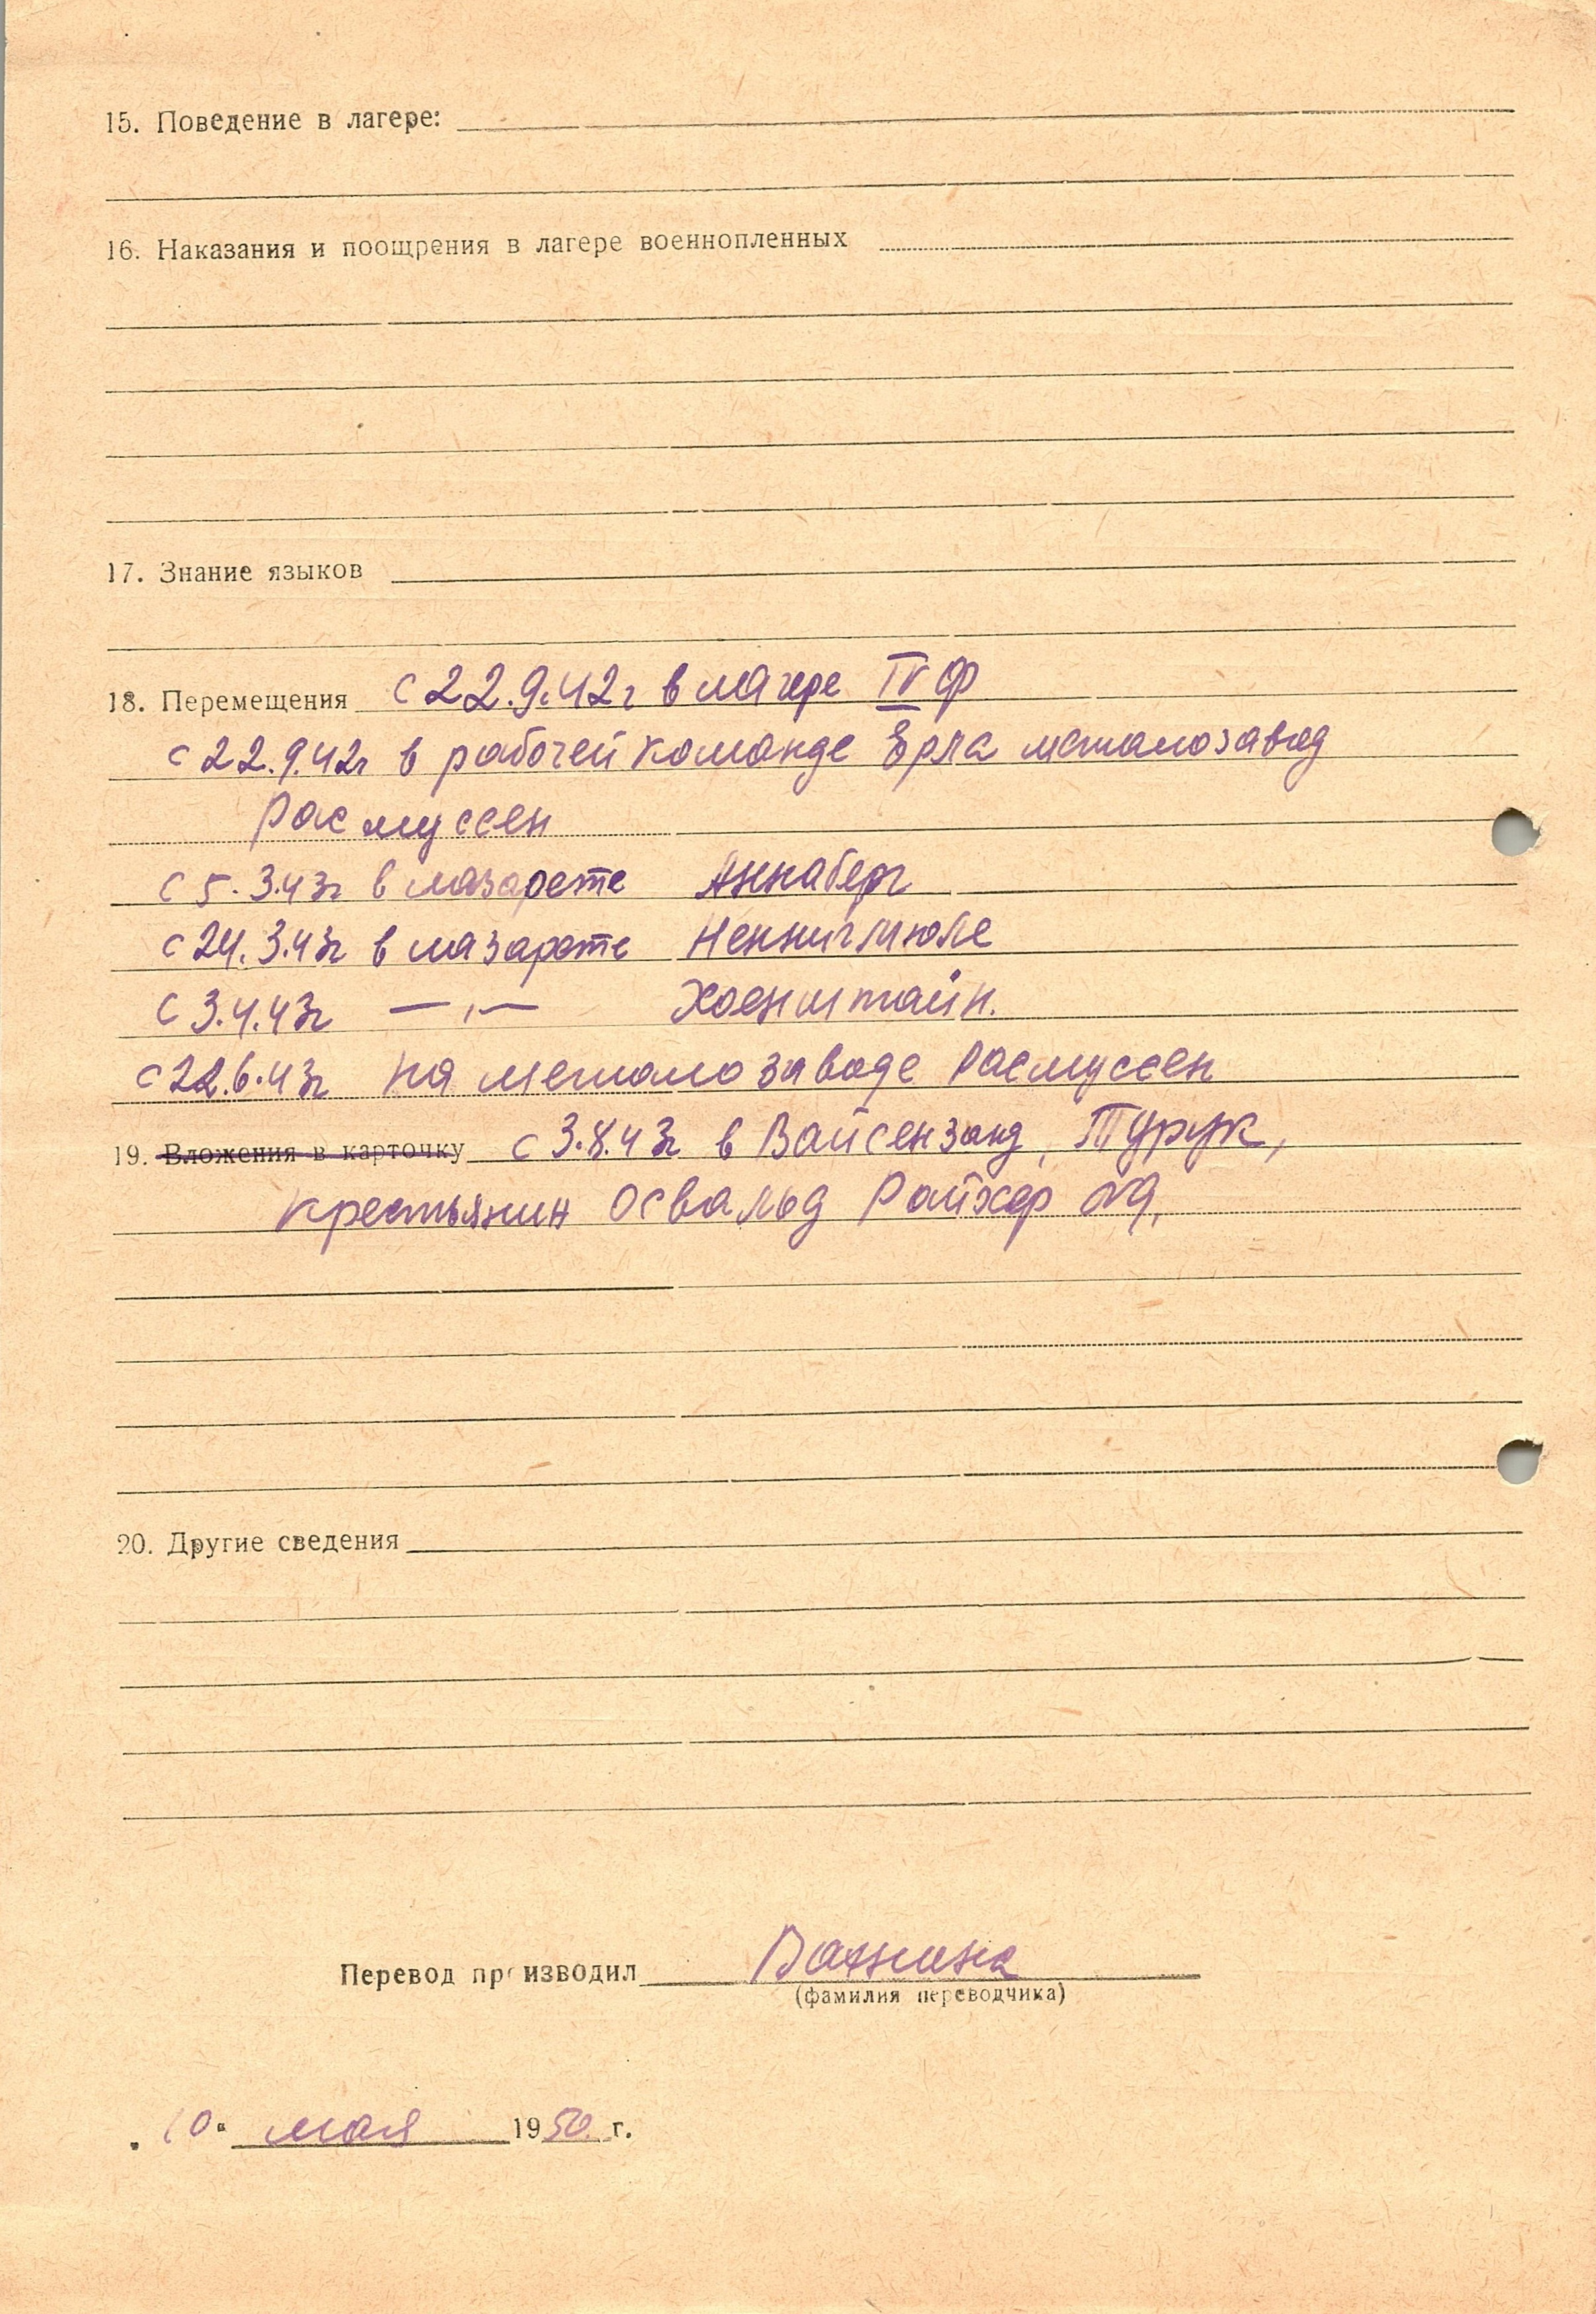 15. Поведение в лагере:
16. Наказания и поощрения в лагере военнопленных
17. Знание языков
18. Перемещения с 22.9.42г в лагере IV Ф
с 22.9.42г в рабочей команде Ерла металозавод
Расмуссен
с 5.3.43г в лазарете Аннаберг
с 24.3.43г в лазарете Неннигмюле
с 3.4.43г —„— Хоенштайн.
с 22.6.43г на металозаводе Расмуссен
19. Вложения в карточку с 3.8.43г в Вайсензанд, Турук,
крестьянин Освальд Райхер
20. Другие сведения
Перевод производил Ванина
(фамилия переводчика)
„10" мая 1950 г.